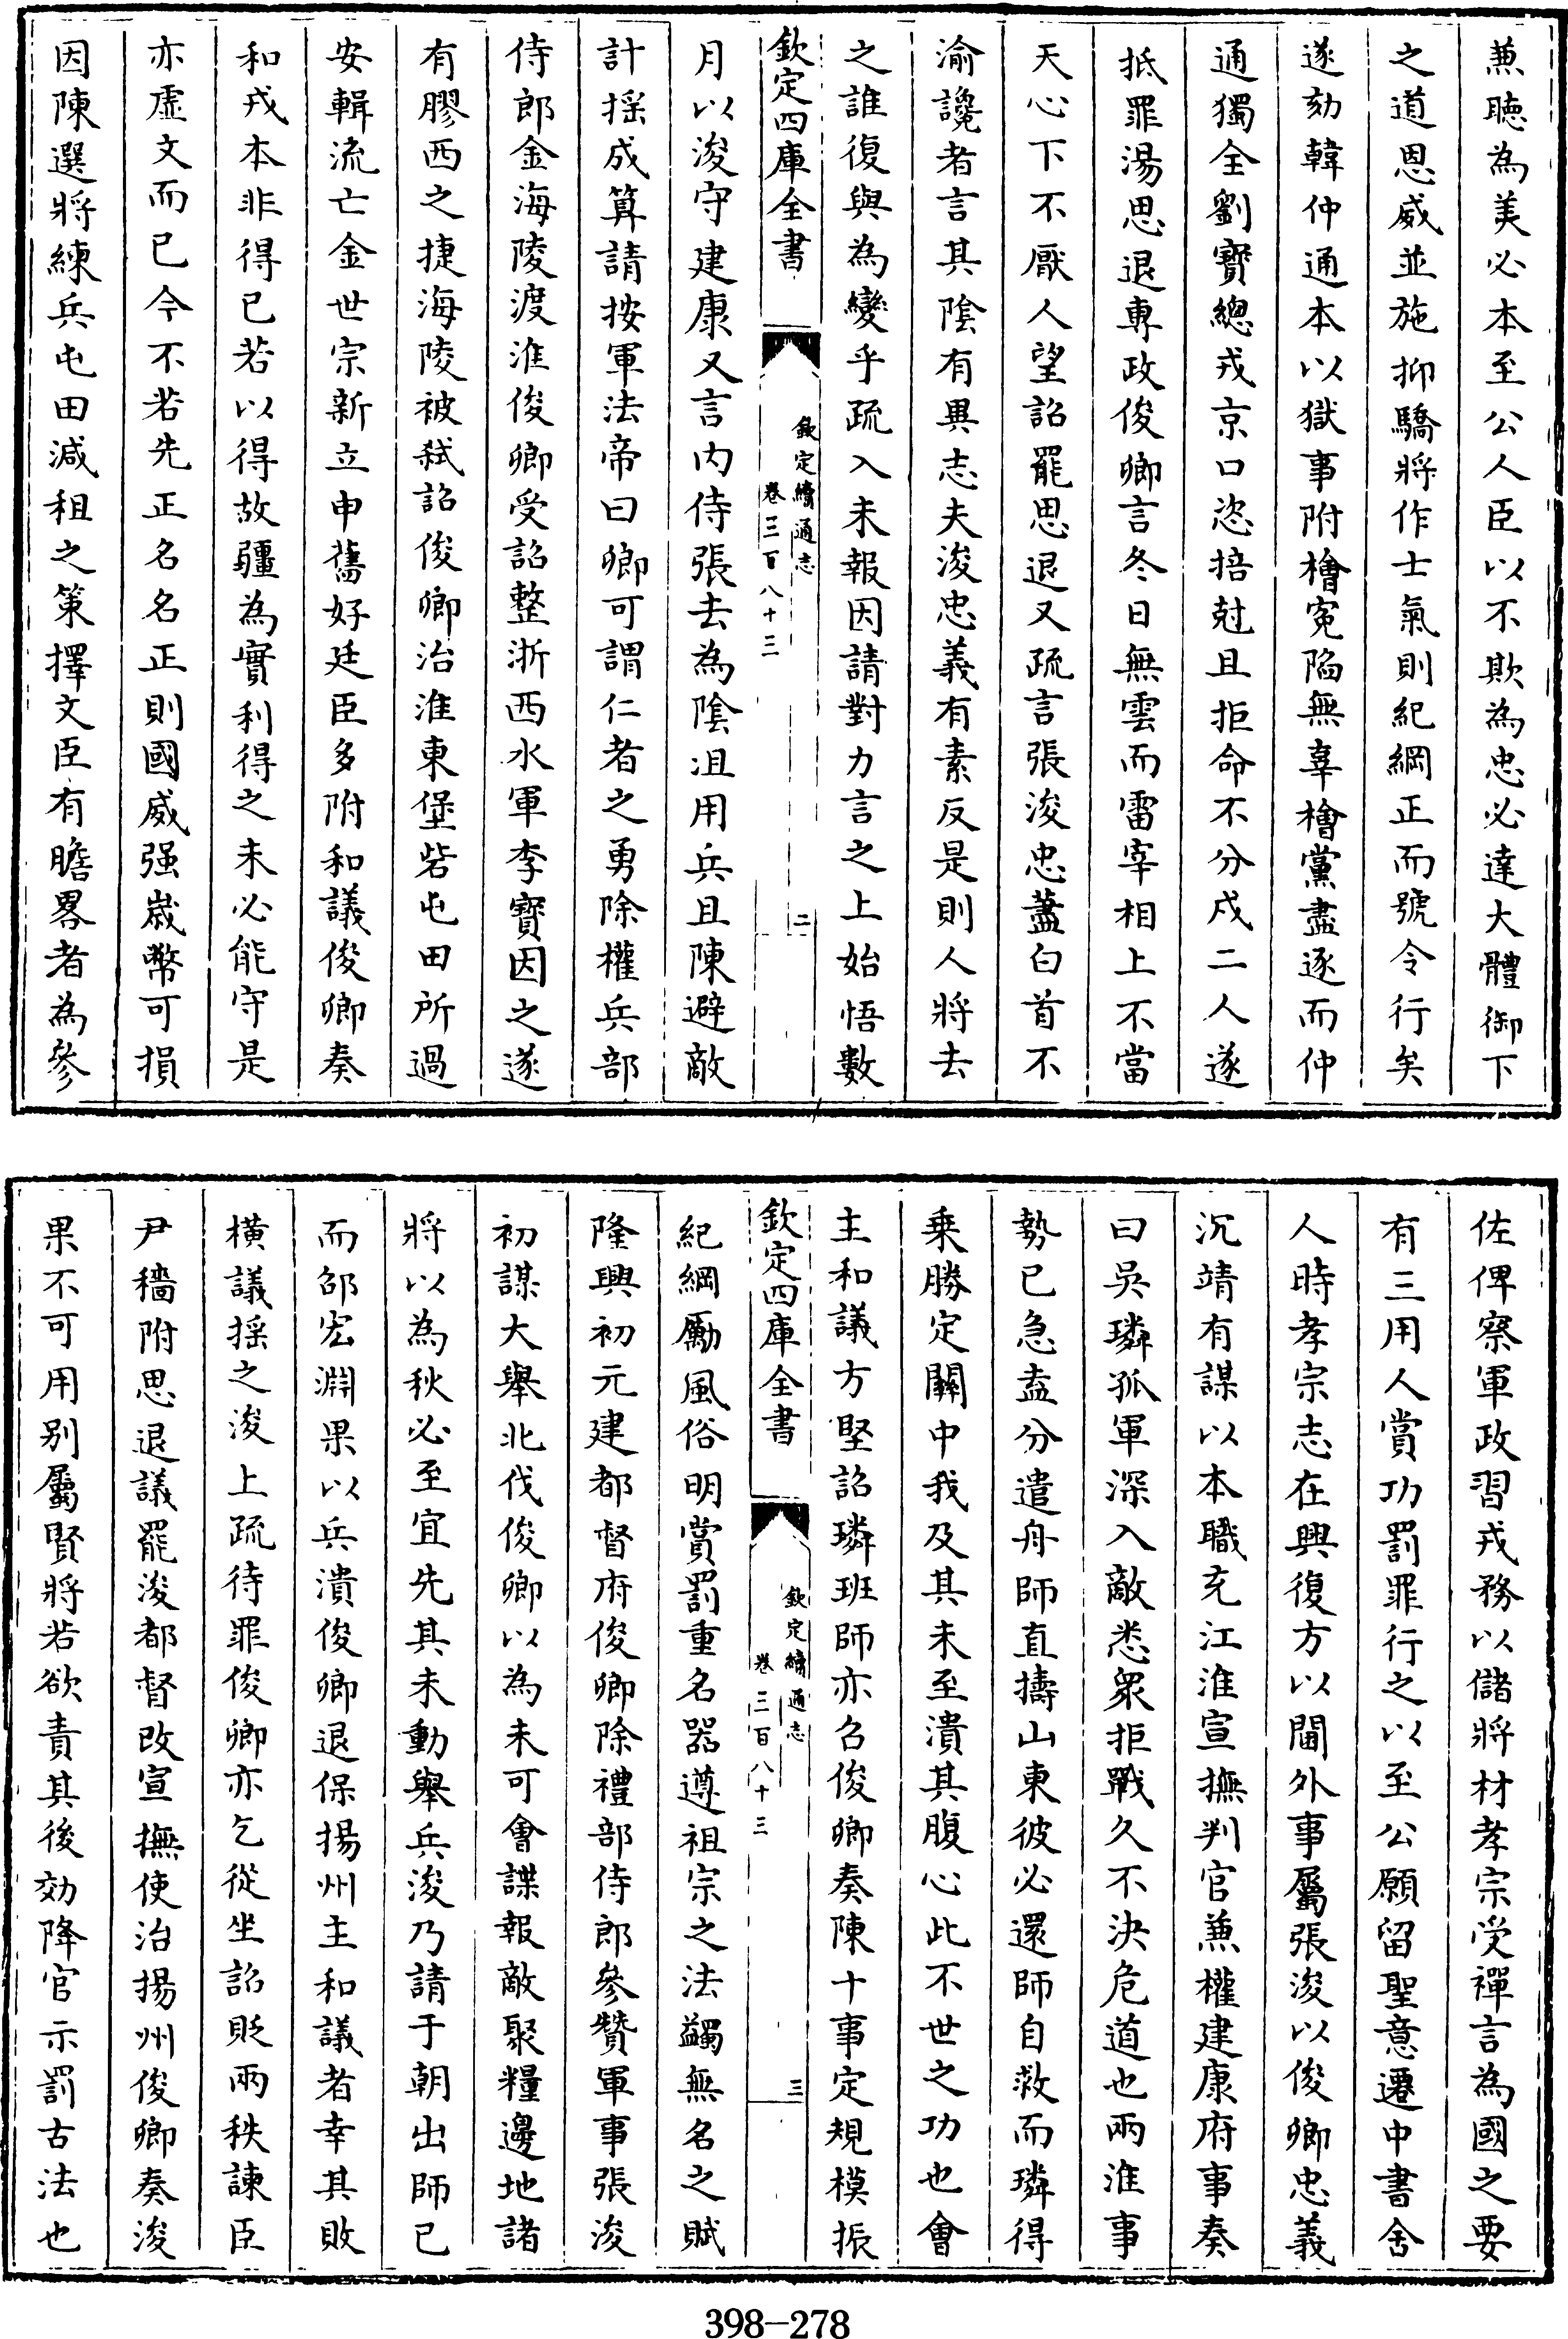 兼聽為美必本至公人臣以不欺為忠必達大體御下
之道恩威並施抑驕將作士氣則紀綱正而號令行矣
遂劾韓仲通本以獄事附檜寃陷無辜檜黨盡逐而仲
通獨全劉寶總戎京口恣掊尅且拒命不分戍二人遂
抵罪湯思退專政俊卿言冬日無雲而雷宰相上不當
天心下不厭人望詔罷思退又疏言張浚忠藎白首不
渝讒者言其陰有異志夫浚忠義有素反是則人將去
之誰復與為變乎疏入未報因請對力言之上始悟數
欽定四庫全書
欽定續通志
卷三百八十三
二
月以浚守建康又言內侍張去為陰沮用兵且陳避敵
計揺成算請按軍法帝曰卿可謂仁者之勇除權兵部
侍郎金海陵渡淮俊卿受詔整浙西水軍李寶因之遂
有膠西之捷海陵被弑詔俊卿治淮東堡砦屯田所過
安輯流亡金世宗新立申舊好廷臣多附和議俊卿奏
和戎本非得已若以得故疆為實利得之未必能守是
亦虛文而已今不若先正名名正則國威强嵗幣可損
因陳選將練兵屯田減租之策擇文臣有膽畧者為參
佐俾察軍政習戎務以儲將材孝宗受禪言為國之要
有三用人賞功罰罪行之以至公願留聖意遷中書舍
人時孝宗志在興復方以閫外事屬張浚以俊卿忠義
沉靖有謀以本職充江淮宣撫判官兼權建康府事奏
曰吳璘孤軍深入敵悉衆拒戰久不決危道也兩淮事
勢已急盍分遣舟師直擣山東彼必還師自救而璘得
乘勝定關中我及其未至潰其腹心此不世之功也會
主和議方堅詔璘班師亦召俊卿奏陳十事定規模振
欽定四庫全書
欽定續通志
卷三百八十三
三
紀綱勵風俗明賞罰重名器遵祖宗之法蠲無名之賦
隆興初元建都督府俊卿除禮部侍郎參贊軍事張浚
初謀大舉北伐俊卿以為未可會諜報敵聚糧邊地諸
將以為秋必至宜先其未動舉兵浚乃請于朝出師已
而邵宏淵果以兵潰俊卿退保揚州主和議者幸其敗
橫議揺之浚上疏待罪俊卿亦乞從坐詔貶兩秩諫臣
尹穡附思退議罷浚都督改宣撫使治揚州俊卿奏浚
果不可用别屬賢將若欲責其後効降官示罰古法也
398-278